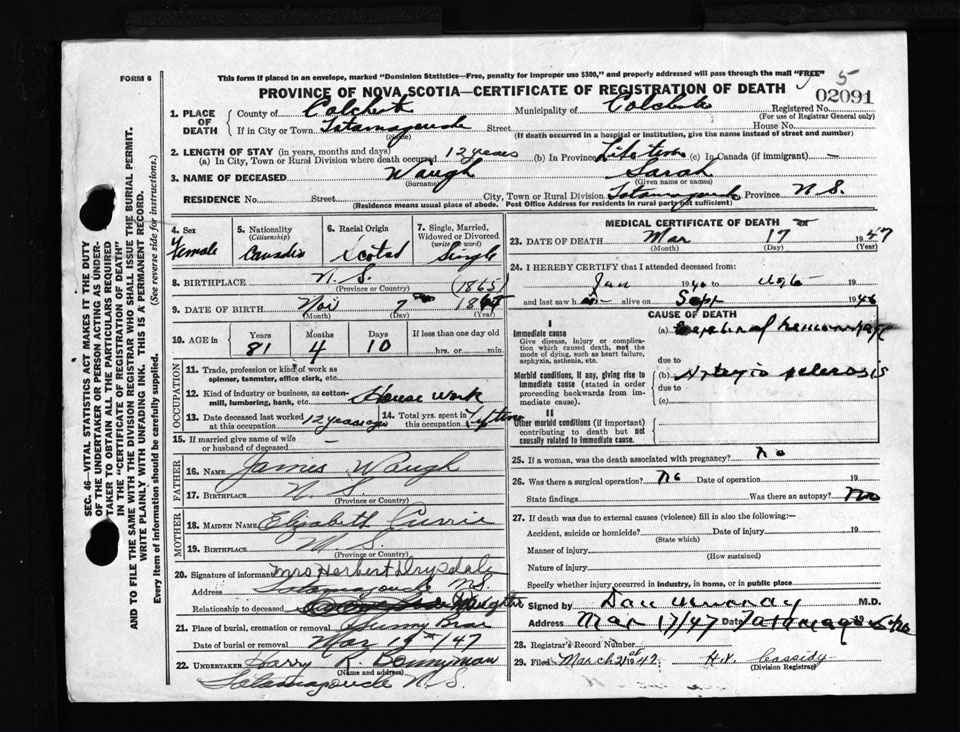 FORM 6
This form if placed in an envelope, marked "Dominion Statistics—Free, penalty for improper use $300," and properly addressed will pass through the mail "FREE"
5
PROVINCE OF NOVA SCOTIA—CERTIFICATE OF REGISTRATION OF DEATH
02091
1. PLACE OF DEATH
County of Colchester Municipality of Colchester Registered No.
(For use of Registrar General only)
If in City or Town Tatamagouche Street House No.
(Name) (If death occurred in a hospital or institution, give the name instead of street and number)
2. LENGTH OF STAY (in years, months and days)
(a) In City, Town or Rural Division where death occurred 12 years (b) In Province Life time (c) In Canada (if immigrant) —
3. NAME OF DECEASED Waugh Sarah
(Surname) (Given name or names)
RESIDENCE No. Street City, Town or Rural Division Tatamagouche Province N.S.
(Residence means usual place of abode. Post Office Address for residents in rural parts not sufficient)
4. Sex Female
5. Nationality (Citizenship) Canadian
6. Racial Origin Scotch
7. Single, Married, Widowed or Divorced (write the word) Single
8. BIRTHPLACE N. S.
(Province or Country) (1865)
9. DATE OF BIRTH Nov 7 18
(Month) (Day) (Year)
10. AGE in Years 81 Months 4 Days 10 If less than one day old hrs. or min.
OCCUPATION
11. Trade, profession or kind of work as spinner, teamster, office clerk, etc.
12. Kind of industry or business, as cotton-mill, lumbering, bank, etc. House Work
13. Date deceased last worked at this occupation 12 years ago
14. Total yrs. spent in this occupation Lifetime
15. If married give name of wife or husband of deceased —
FATHER
16. NAME James Waugh
17. BIRTHPLACE N. S.
(Province or Country)
MOTHER
18. MAIDEN NAME Elizabeth Currie
19. BIRTHPLACE N. S.
(Province or Country)
20. Signature of informant Mrs Herbert Drysdale
Address Tatamagouche N.S.
Relationship to deceased
21. Place of burial, cremation or removal Sunny Brae
Date of burial or removal Mar 19th 47
22. UNDERTAKER Harry K. Bonnyman
(Name and address)
Tatamagouche N. S.
MEDICAL CERTIFICATE OF DEATH
23. DATE OF DEATH Mar 17 1947
(Month) (Day) (Year)
24. I HEREBY CERTIFY that I attended deceased from:
Jan 1940 to
and last saw h alive on Sept 1946
CAUSE OF DEATH
I
Immediate cause
Give disease, injury or complication which caused death, not the mode of dying, such as heart failure, asphyxia, asthenia, etc.
(a) Cerebral hemorrhage
due to
Morbid conditions, if any, giving rise to immediate cause (stated in order proceeding backwards from immediate cause).
(b) Arterio sclerosis
due to
(c)
II
Other morbid conditions (if important) contributing to death but not causally related to immediate cause.
25. If a woman, was the death associated with pregnancy? no
26. Was there a surgical operation? no Date of operation 19
State findings Was there an autopsy? no
27. If death was due to external causes (violence) fill in also the following:—
Accident, suicide or homicide? Date of injury 19
(State which)
Manner of injury
(How sustained)
Nature of injury
Specify whether injury occurred in industry, in home, or in public place
Signed by Dan Murray M.D.
Address Mar 17/47 Date Tatamagouche
28. Registrar's Record Number
29. Filed March 21st 1947 H.V. Cassidy
(Division Registrar)
SEC. 46—VITAL STATISTICS ACT MAKES IT THE DUTY
OF THE UNDERTAKER OR PERSON ACTING AS UNDER-
TAKER TO OBTAIN ALL THE PARTICULARS REQUIRED
IN THE "CERTIFICATE OF REGISTRATION OF DEATH"
AND TO FILE THE SAME WITH THE DIVISION REGISTRAR WHO SHALL ISSUE THE BURIAL PERMIT.
WRITE PLAINLY WITH UNFADING INK. THIS IS A PERMANENT RECORD.
Every item of information should be carefully supplied. (See reverse side for instructions.)